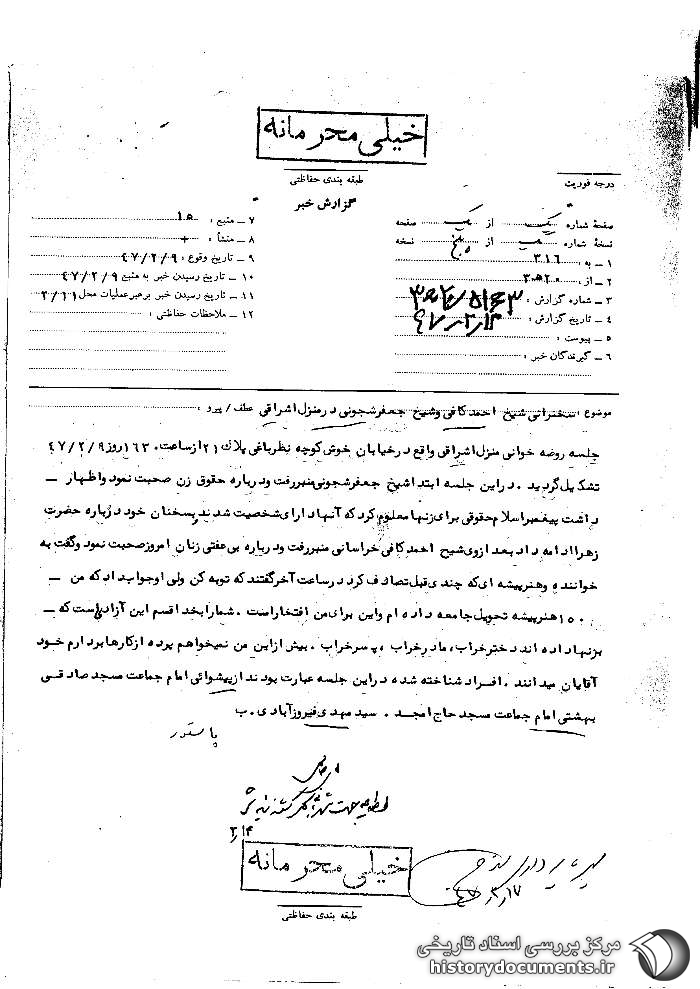 خیلی محرمانه
طبقه بندی حفاظتی
درجه فوریت
گزارش خبر
صفحهٔ شماره یک از یک صفحه
نسخهٔ شماره از پنج نسخه
۱ – به : ۳۱۶
۲ – از :
۳ – شماره گزارش :
۴ – تاریخ گزارش :
۵ – پیوست :
۶ – گیرندگان خبر :
۷ – منبع :
۸ – منشأ :
۹ – تاریخ وقوع : ۴۷/۲/۹
۱۰ – تاریخ رسیدن خبر به منبع ۴۷/۲/۹
۱۱ – تاریخ رسیدن خبر برهبر عملیات محل
۱۲ – ملاحظات حفاظتی :
موضوع : سخنرانی شیخ احمد کافی و شیخ جعفر شجونی در منزل اشراقی عطف / پیرو :
جلسه روضه خوانی منزل اشراقی واقع در خیابان خوش کوچه نظرباغی پلاک ۲۱ از ساعت ۱۶۳۰ روز ۴۷/۲/۹
تشکیل گردید . در این جلسه ابتدا شیخ جعفر شجونی منبر رفت و درباره حقوق زن صحبت نمود و اظهار –
داشت پیغمبر اسلام حقوقی برای زنها معلوم کرد که آنها دارای شخصیت شدند و بسخنان خود درباره حضرت
زهرا ادامه داد بعد از وی شیخ احمد کافی خراسانی منبر رفت و درباره بی عفتی زنان امروز صحبت نمود و گفت به
خواننده و هنرپیشه ای که چندی قبل تصادف کرد در ساعت آخر گفتند که توبه کن ولی او جواب داد که من –
۱۵۰ هنرپیشه تحویل جامعه داده ام و این برای من افتخار است . شما را بخدا قسم این آزادی است که –
بزنها داده اند دختر خراب ، مادر خراب ، پسر خراب . بیش از این من نمیخواهم پرده از کارها بردارم خود
آقایان میدانند . افراد شناخته شده در این جلسه عبارت بودند از پیشوائی امام جماعت مسجد صادقی
بهشتی امام جماعت مسجد حاج امجد . سید مهدی فیروزآبادی . ب
پاستور
۲/۱۴
خیلی محرمانه
طبقه بندی حفاظتی
مرکز بررسی اسناد تاریخی
historydocuments.ir